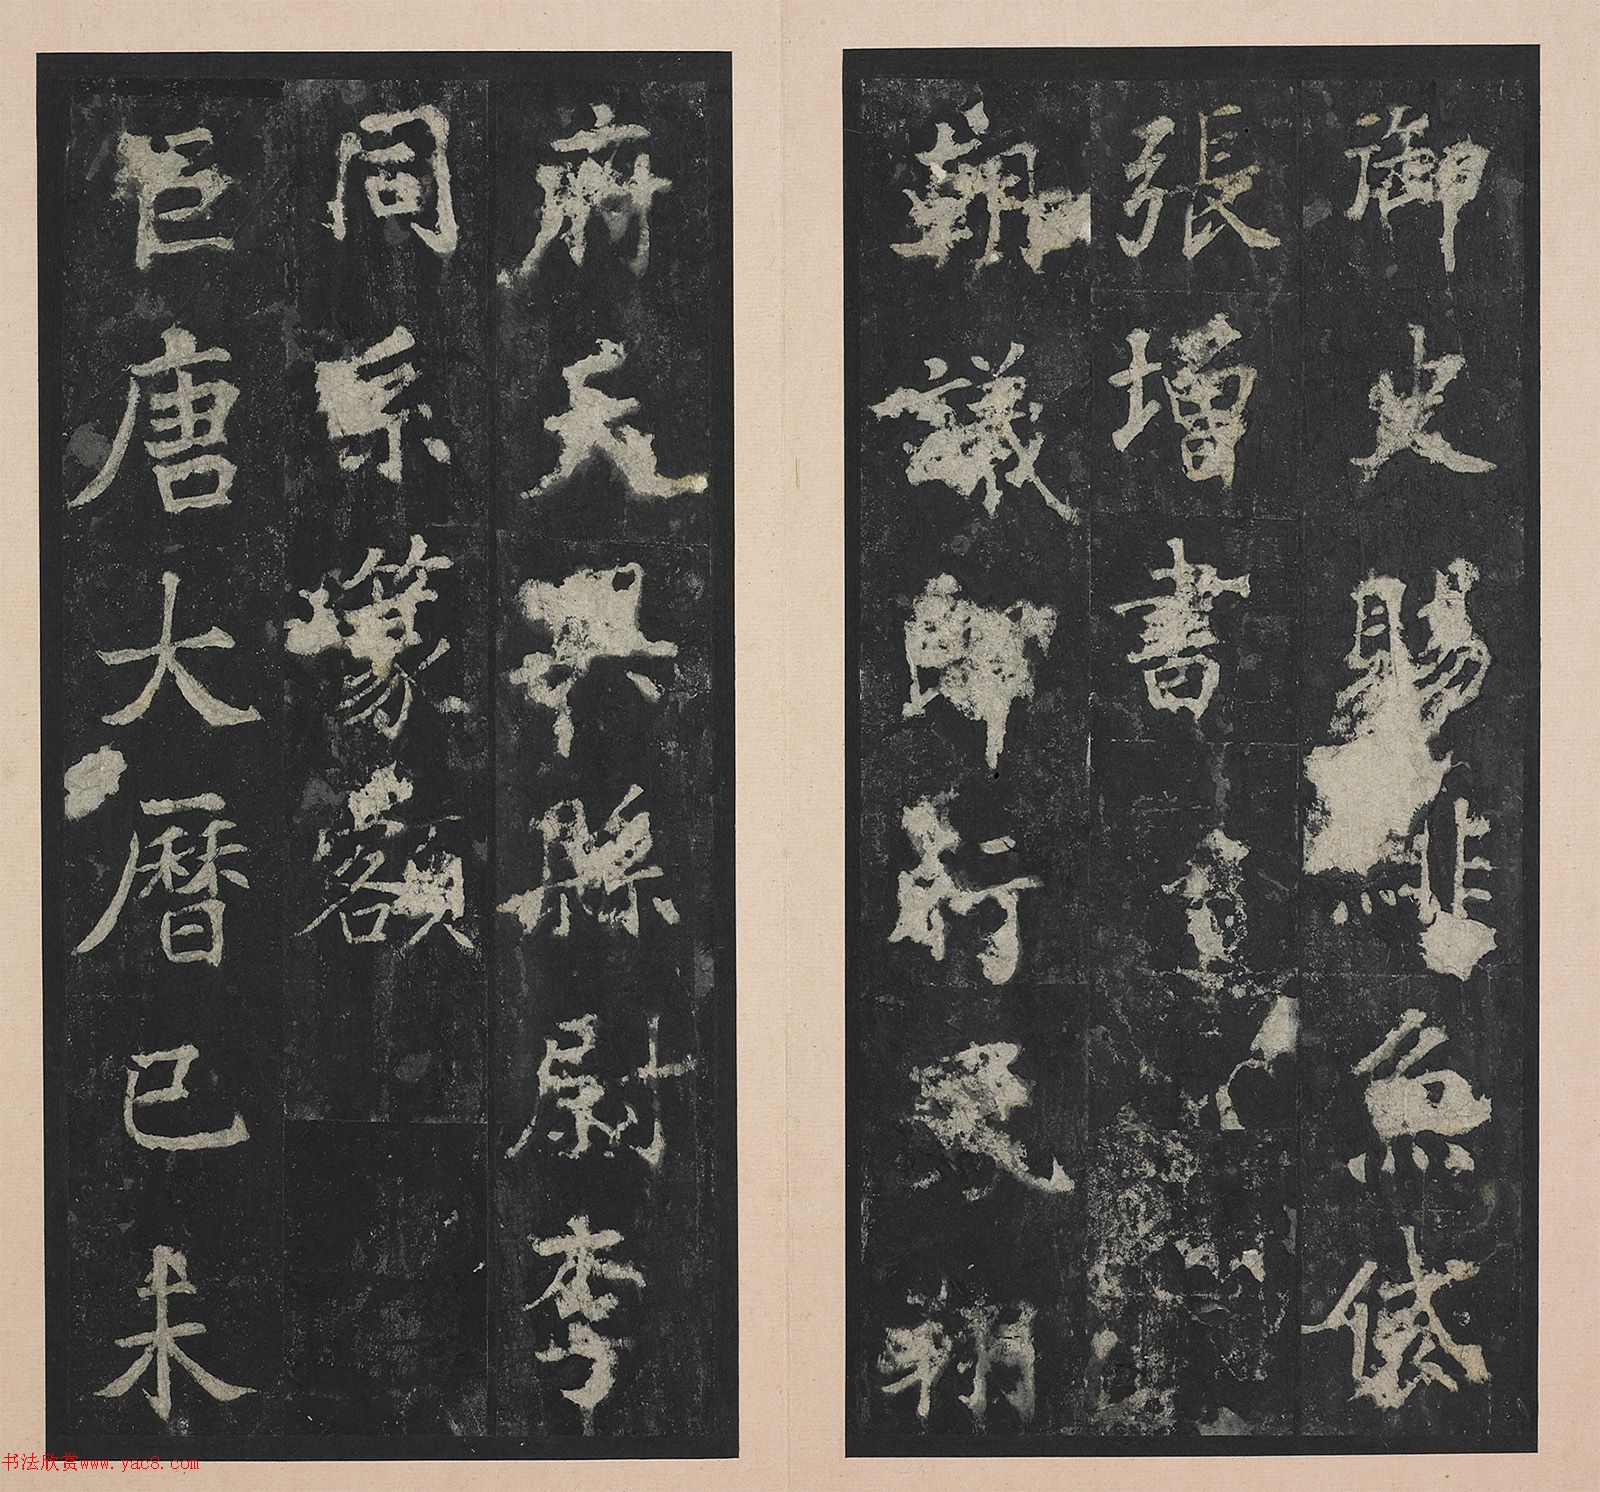 御史賜緋魚袋
張增書
朝議郎行鳳翔
府天興縣尉李
同系篆額
巨唐大曆己未
书法欣赏www.yac8.com